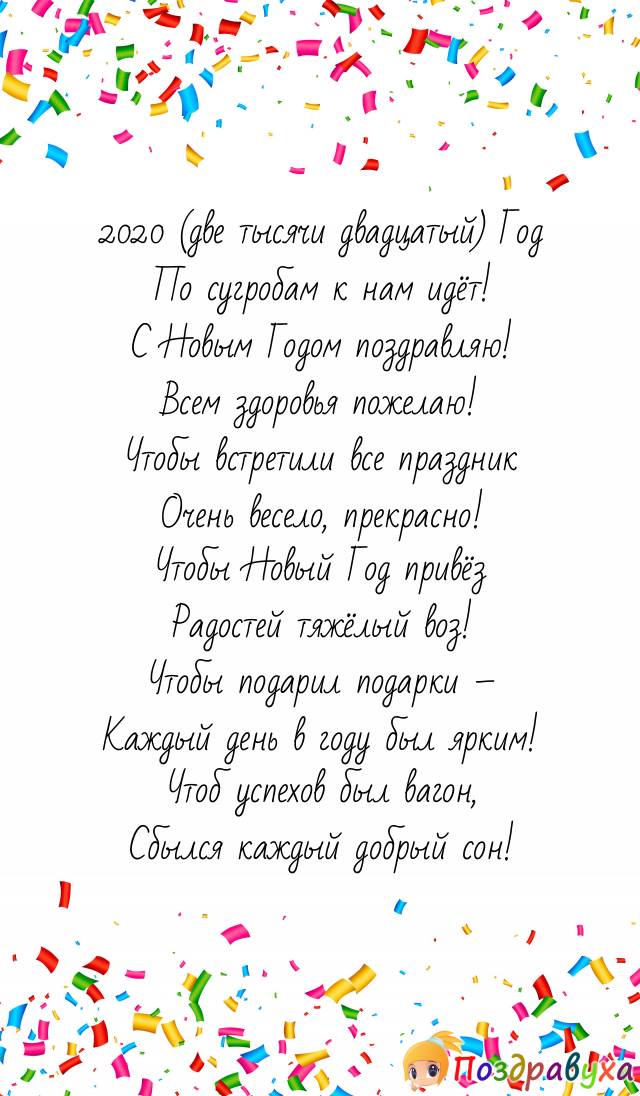 2020 (две тысячи двадцатый) Год
По сугробам к нам идёт!
С Новым Годом поздравляю!
Всем здоровья пожелаю!
Чтобы встретили все праздник
Очень весело, прекрасно!
Чтобы Новый Год привёз
Радостей тяжёлый воз!
Чтобы подарил подарки –
Каждый день в году был ярким!
Чтоб успехов был вагон,
Сбылся каждый добрый сон!
Поздравуха